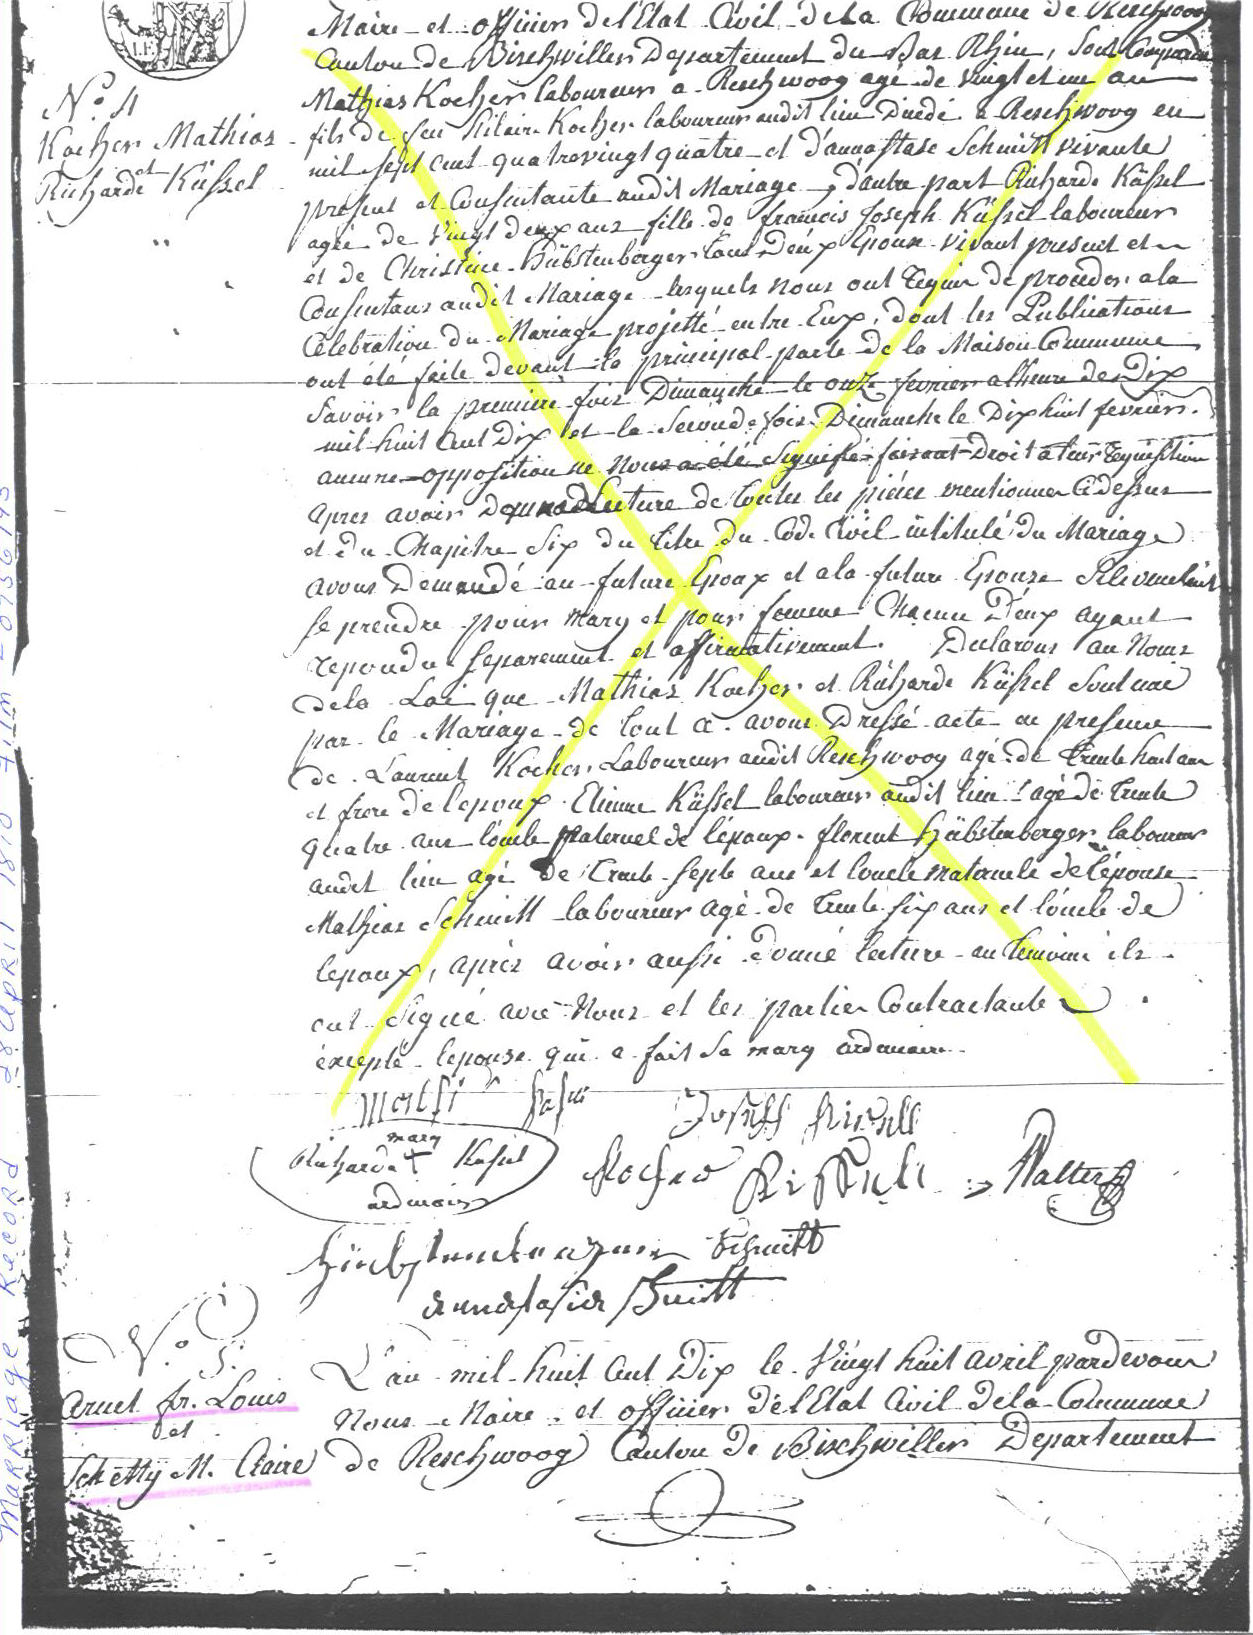 Maire et officier de l'Etat Civil de la Commune de Reschwoog
Canton de Bischwiller Departement du Bas Rhin, sont
Mathias Kocher laboureur a Reschwoog age de vingt et un an
fils de feu Hilaire Kocher laboureur audit lieu Décédé a Reschwoog en
mil sept cent quatrevingt quatre et d'annastase Schmitt vivante
present et Consentante audit Mariage, d'autre part Richarde Küssel
agée de vingt deux ans fille de francois Joseph Küssel laboureur
et de Christine Häbstenberger tous deux Epoux vivant present et
Consentans audit Mariage lesquels nous ont requis de proceder a la
Célebration du Mariage projetté entre Eux, dont les Publications
ont été faite devant la principal porte de la Maison Commune
Savoir la premiere fois Dimanche le onze fevrier a lheure de Dix
mil huit cent Dix et la Seconde fois Dimanche le Dix huit fevrier.
aucune opposition ne Nous a été Signifié faisant Droit a leur requisition
apres avoir donné Lecture de toutes les piéces mentionner Cidessus
et du Chapitre Six du titre du Code Civil intitulé du Mariage
avons Demandé au future Epoux et a la future Epouse
se prendre pour mary et pour femme Chacun D'eux ayant
repondu separement et affirmativement. Declarons au Nom
de la Loi que Mathias Kocher et Richarde Küssel sont unie
par le Mariage de tout ce avons Dressé acte en presence
de Laurent Kocher Laboureur audit Reschwoog agé de Trente huit ans
et frere de l'epoux Etienne Küssel laboureur audit lieu agé de Trente
quatre ans l'oncle paternel de l'épouse. florent Häbstenberger laboureur
audit lieu agé de Trente Septe ans et l'oncle maternele de l'épouse
Mathias Schmitt laboureur agé de Trente six ans et l'oncle de
lepoux, aprés avoir aussi donné lecture au temoins ils
ont signé avec Nous et les partier Contractante
éxcepté lepouse qui a fait sa marq ordinaire.
Joseph
marq
Richarde + Küssel
ordinaire
Kocher Walter
Schmitt
Schmitt
N.o 4
Kocher Mathias
et
Richarde Küssel
N.o 5.
Arnet fr. Louis
et
Schetty M. Claire
L'an mil huit cent Dix le Vingt huit avril pardevant
Nous Maire et officier de l'Etat Civil de la Commune
de Reschwoog Canton de Bischwiller Departement
Marriage Record 28 April 1810 Film